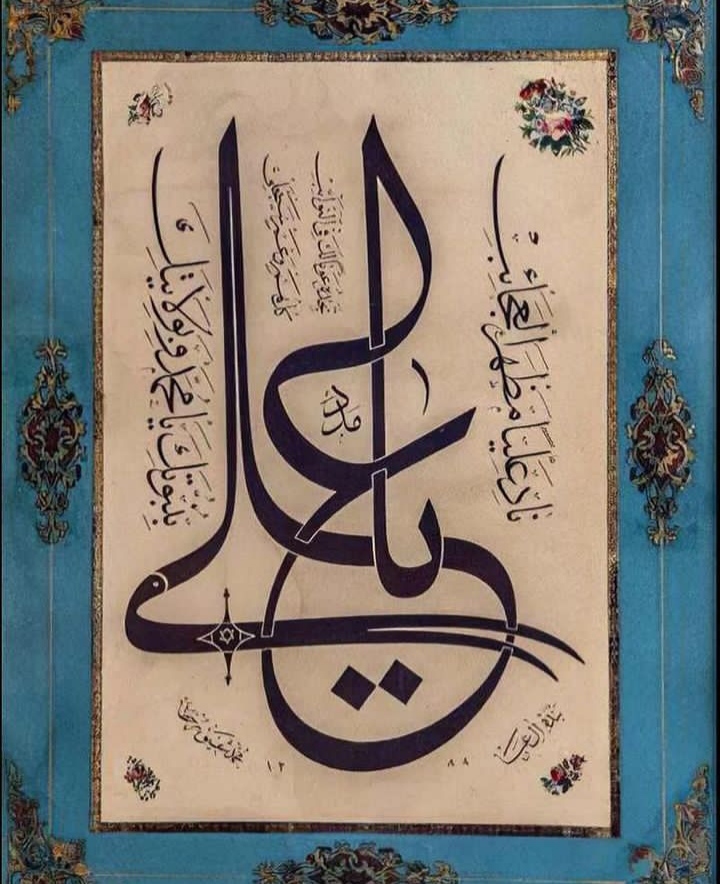 ناد عليا مظهر العجائب
تجده عونا لك في النوائب
كل هم وغم سينجلي
بنبوتك يا محمد وبولايتك
يا علي
مدد
بنده آل عبا
محمد شفيق
١٢٨٨